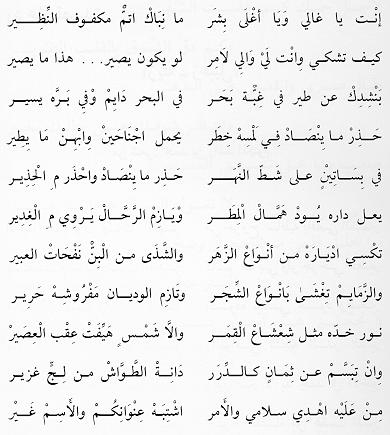 إنْت يا غالي وَيَا أَغْلَى بِشَر ما نِبَاكْ اتمّْ مكفوف النِّظِير
كيف تشكي وانْت لَيْ وَالي لَامِر لو يكون يصير... هذا ما يصير
بَنْشِدِكْ عن طير في غبِّة بَحَر في البحر دَايِمْ وْفِي بَرَّه يسير
حَذِرْ ما يِنْصَادْ في لَمْسِهْ خِطَر يحمل اجْنَاحَينْ وابْهِنْ مَا يِطِير
في بِسَاتِيْنٍ على شطّ النَّهَر حَذِر ما يِنْصَادْ واحْذَر مِ الْحِذِير
يعل داره يُودْ هَمَّالْ الْمِطَر وْيَازِمْ الرَّحَّالْ يَرْوِي مِ الْغِدِير
تِكْسِي ادْيَارَهْ من أنْوَاعْ الزَّهَر والشَّذَى من الْبِنّْ نَفْحَاتْ العبير
والزَّمَايِمْ تِغْشَىْ بَانْوَاعْ الشِّجَر وتَازِم الوديان مَفْرُوشِهْ حَرِير
نور خدّه مثل شِعْشَاعْ الْقِمَر والَّا شَمْسٍ هَيَّفَتْ عِقْب الْعصِيْرْ
وانْ تِبَسَّمْ عن ثمَانٍ كالدِّرَر دَانِةْ الطَّوَّاشْ من لِجٍّ غزير
مَنْ عَلَيه اهْدِي سلامي والأمر اشْتِبَهْ عِنْوَانِكُمْ والأسِمْ غَيْر